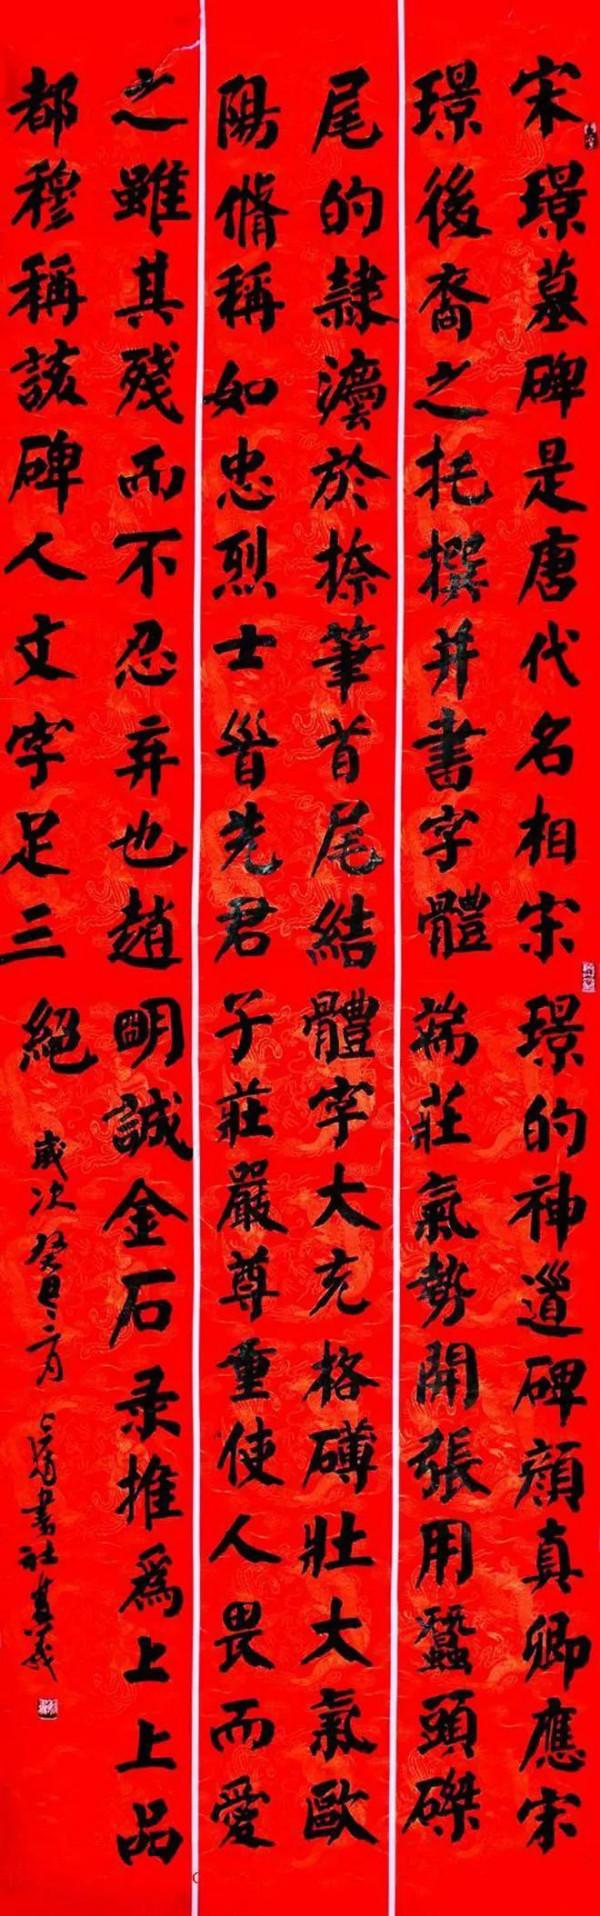 宋璟墓碑是唐代名相宋璟的神道碑顔真卿應宋
璟後裔之托撰并書字體端莊氣勢開張用蠶頭磔
尾的隸灋於捺筆首尾結體字大充格礴壯大氣歐
陽脩稱如忠烈士𣅜先君子莊嚴尊重使人畏而愛
之雖其殘而不忍弃也趙明誠金石录推爲上上品
都穆稱該碑人文字足三絕
歲次癸巳二月
書社